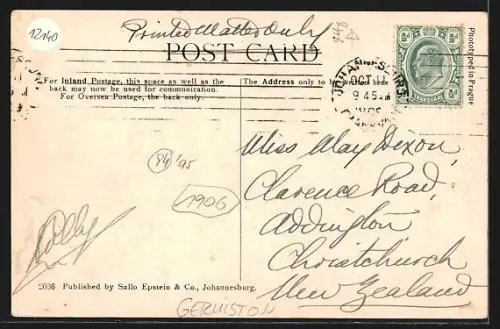 12140
Printed Matter Only
POST CARD
For Inland Postage, this space as well as the
back may now be used for communication.
For Oversea Postage, the back only.
The Address only to be
JOHANNESBURG
OCT 11
9 45 AM
TRANSVAAL
Phototyped in Prague
Miss May Dixon,
Clarence Road,
Addington
Christchurch
New Zealand
84/95
1906
2036 Published by Sallo Epstein & Co., Johannesburg.
GERMISTON